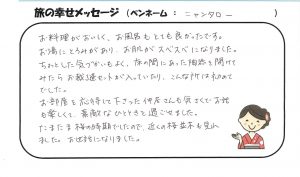 旅の幸せメッセージ(ペンネーム : ニャンタロー )
お料理がおいしく、お風呂もとても良かったです。
お湯にとろみがあり、お肌がスベスベになりました。
ちょっとした気づかいもよく、床の間にあった陶器を開けて
みたらお裁縫セットが入っていたり、こんな所は初めて
でした。
お部屋も応待して下さった仲居さんも気さくでお話
も楽しく、素敵なひとときを過ごせました。
たまたま桜の時期でしたので、近くの桜並木も見
れました。お世話になりました。